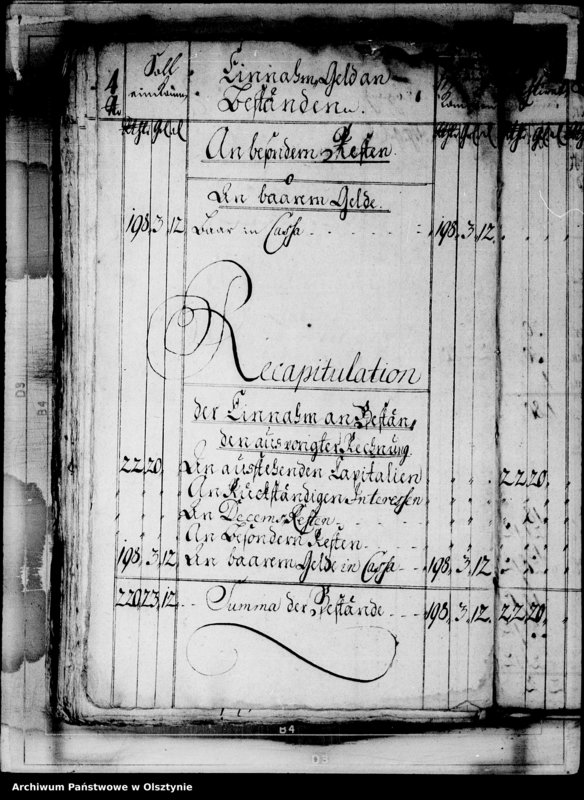 4
Soll
einkom̄en
Einnahm Geld an
Beständen.
An besondern Resten.
An baarem Gelde.
198. 3. 12. Baar in Cassa - - - 198. 3. 12.
Recapitulation
der Einnahm an Bestän,
den aus voriger Rechnung.
22. 20. An ausstehenden Capitalien 22. 20.
An Rückständigen Interessen
An Decems Resten
An besondern Resten
198. 3. 12. An baarem Gelde in Cassa 198. 3. 12.
220. 23. 12. Summa der Bestände 198. 3. 12. 22. 20.
B4
D3
D3
B4
Archiwum Państwowe w Olsztynie